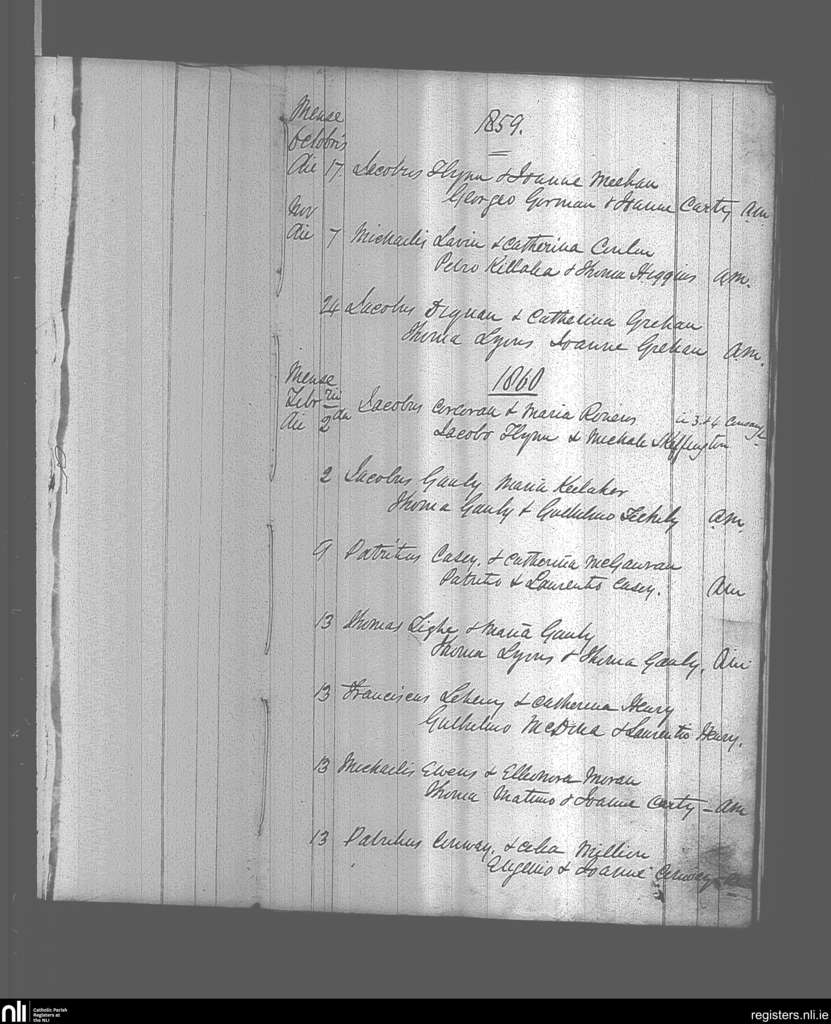 Mense
Octobris
1859.
die 17. Jacobus Flynn & Joanne Meehan
Georgeo Gorman & Joanne Carty AM
Nov
die 7 Michaelis Lavin & Catherina Conlon
Petro Killalea & Thoma Higgins AM.
24 Jacobus Dignan & Catherina Grehan
Thoma Lyons Joanne Grehan AM.
Mense
1860
Febrrii
die 2da Jacobus Corcoran & Maria in 3 & 4
Jacobo Flynn & Michale Skeffington
2 Jacobus Gauly Maria Keelaher
Thoma Gauly & Gulielmo AM.
9 Patritius Casey. & Catherina McGauran
Patritio & Laurentio Casey. AM
13 Thomas Tighe & Maria Gauly
Thoma Lyons & Thoma Gauly. AM
13 Franciscus Leheny & Catherina Henry
Gulhelmo & Laurentio Henry.
13 Michaelis Owens & Elleonora Moran
Thoma & Joanne Carty - AM
13 Patritius Conway. & Celia
Eugenio & Joanne Conway
nli
Catholic Parish
Registers at
the NLI
registers.nli.ie